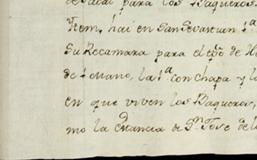 de Sacar para los Vaqueros
Item, hai en San Sevastian 1ª
su Recamara para el
de 1 mano, la 1ª con chapa y l
en que viven los Vaqueros,
mo la Estancia de Sⁿ Jose de l